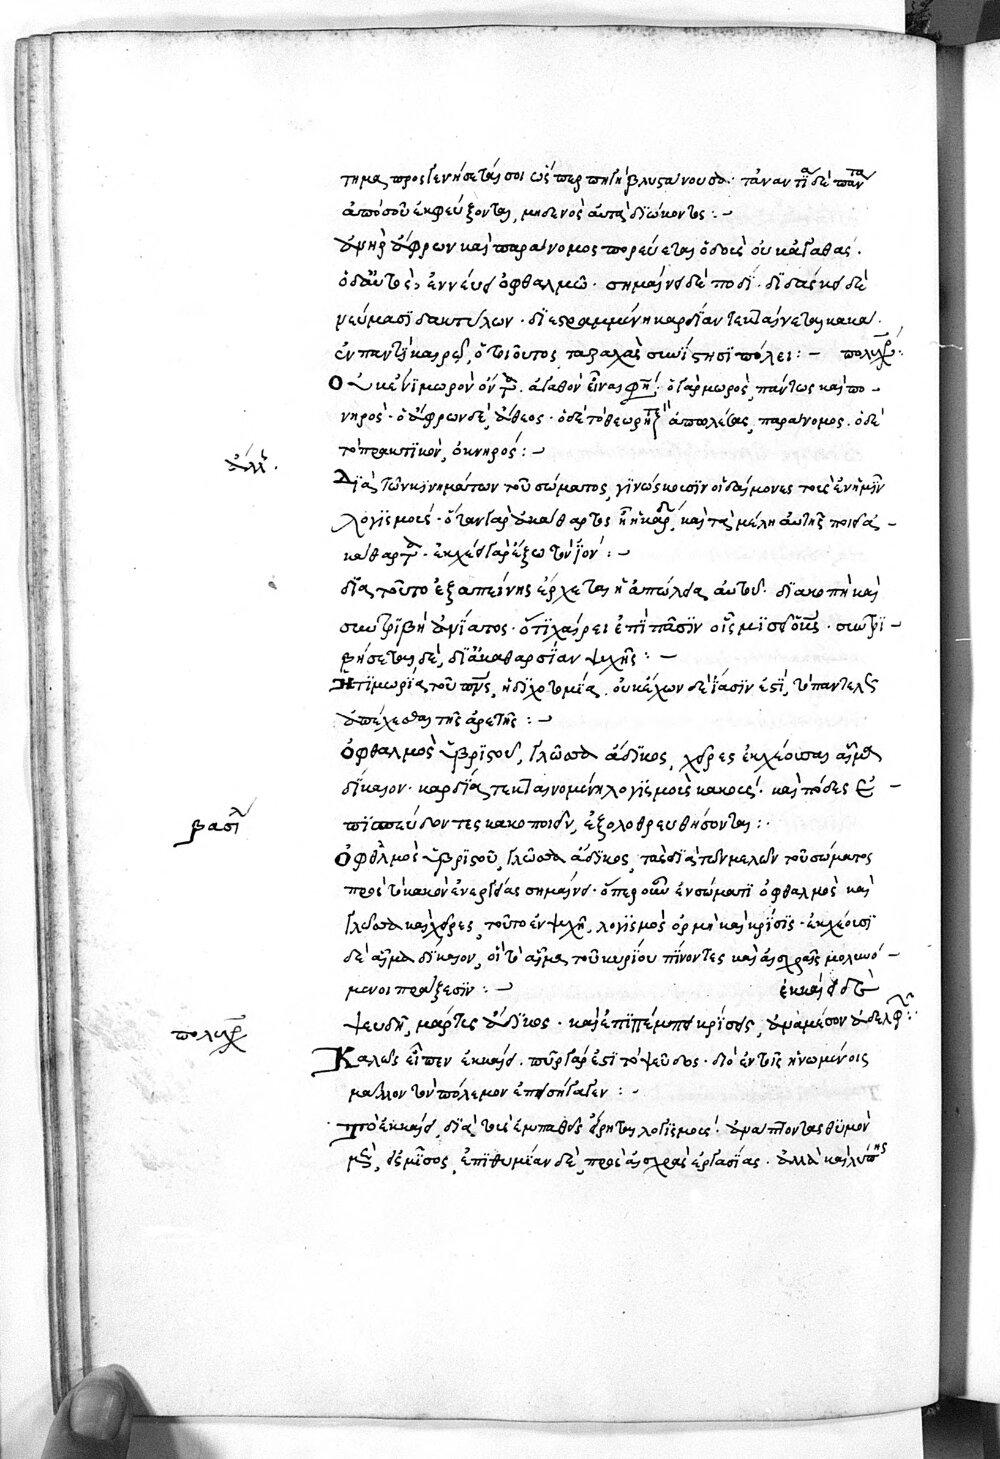 τημα, προσγενήσεταί σοι ὥσπερ πηγὴ βλυστάνουσα· τἀναντία δὲ πάντα
ἀπὸ σοῦ ἐκφεύξονται, μηδενὸς αὐτὰ διώκοντος :-
ἀνὴρ ἄφρων καὶ παράνομος πορεύεται ὁδοὺς οὐκ ἀγαθάς.
ὁ δ' αὐτὸς ἐννεύει ὀφθαλμῶ· σημαίνει δὲ ποδί· διδάσκει δὲ
νεύμασι δακτύλων· διεστραμμένη καρδία τεκταίνεται κακὰ.
ἐν παντὶ καιρῶ, ὁ τοιοῦτος ταραχὰς συνίστησι πόλει :- πολυχρ :
Οὐκ ἔνι μωρὸν ὄντα, ἀγαθὸν εἶναι φησί· ὁ γὰρ μωρὸς, πάντως καὶ πο-
νηρός· ὁ ἄφρων δὲ, ἄθεος· ὁ δὲ τὸ θεωρητικὸν ἀπολέσας, παράνομος. ὁ δὲ
τὸ πρακτικὸν, ὀκνηρός :-
ἄλλ.
Διὰ τῶν κινημάτων τοῦ σώματος, γινώσκουσιν οἱ δαίμονες τοὺς ἐν ἡμῖν
λογισμούς· ὅταν γὰρ ἀκάθαρτος ἦ ἡ καρδία, καὶ τὰ μέλη αὐτῆς ποιεῖ ἀ-
κάθαρτα· ἐκχέει γὰρ ἔξω τὸν ἰόν :-
διὰ τοῦτο ἐξαπίνης ἔρχεται ἡ ἀπώλεια αὐτοῦ. διακοπὴ καὶ
συντριβὴ ἀνίατος· ὅτι χαίρει ἐπὶ πᾶσιν οἷς μισεῖ ὁ θεός· συντρί-
βήσεται δὲ, δι' ἀκαθαρσίαν ψυχῆς :-
Ἡ τιμωρία τοῦ τοιούτου, ἡ διχοτομία. οὐκ ἔχων δὲ ἴασίν ἐστι, τὸ παντελῶς
ἀπέχεσθαι τῆς ἀρετῆς :-
ὀφθαλμὸς ὑβριστοῦ, γλῶσσα ἄδικος, χεῖρες ἐκχέουσαι αἷμα
δίκαιον· καρδία τεκταινομένη λογισμοὺς κακούς· καὶ πόδες ἐ-
πισπεύδοντες κακοποιεῖν, ἐξολοθρευθήσονται :
βασιλ
ὀφθαλμὸς ὑβριστοῦ, γλῶσσα ἄδικος, τὰς διὰ τῶν μελῶν τοῦ σώματος
πρὸς τὸ κακὸν ἐνεργείας σημαίνει· ὅπερ οὖν ἐν σώματι ὀφθαλμὸς καὶ
γλῶσσα καὶ χεῖρες, τοῦτο ἐν ψυχῆ, λογισμὸς ὁρμὴ καὶ κρίσις· ἐκχέουσι
δὲ αἷμα δίκαιον, οἱ τὸ αἷμα τοῦ κυρίου πίνοντες καὶ αἰσχραῖς μολυνό-
μενοι πράξεσιν :- ἐκκαίει
ψευδῆ, μάρτυς ἄδικος· καὶ ἐπιπέμπει κρίσεις, ἀναμέσον ἀδελφῶν :
πολυχρ
Καλῶς εἶπεν ἐκκαίει. πῦρ γάρ ἐστι τὸ ψεῦδος· διὸ ἐν τοῖς ἡνωμένοις
μᾶλλον τὸν πόλεμον ἐπεισήγαγεν :-
τὸ ἐκκαίει, διὰ τοὺς ἐμπαθεῖς εἴρηται λογισμούς· ἀνάπτοντας θυμὸν
μὲν, εἰς μῖσος, ἐπιθυμίαν δὲ, πρὸς αἰσχρὰς ἐργασίας· ἀλλὰ καὶ λύπης